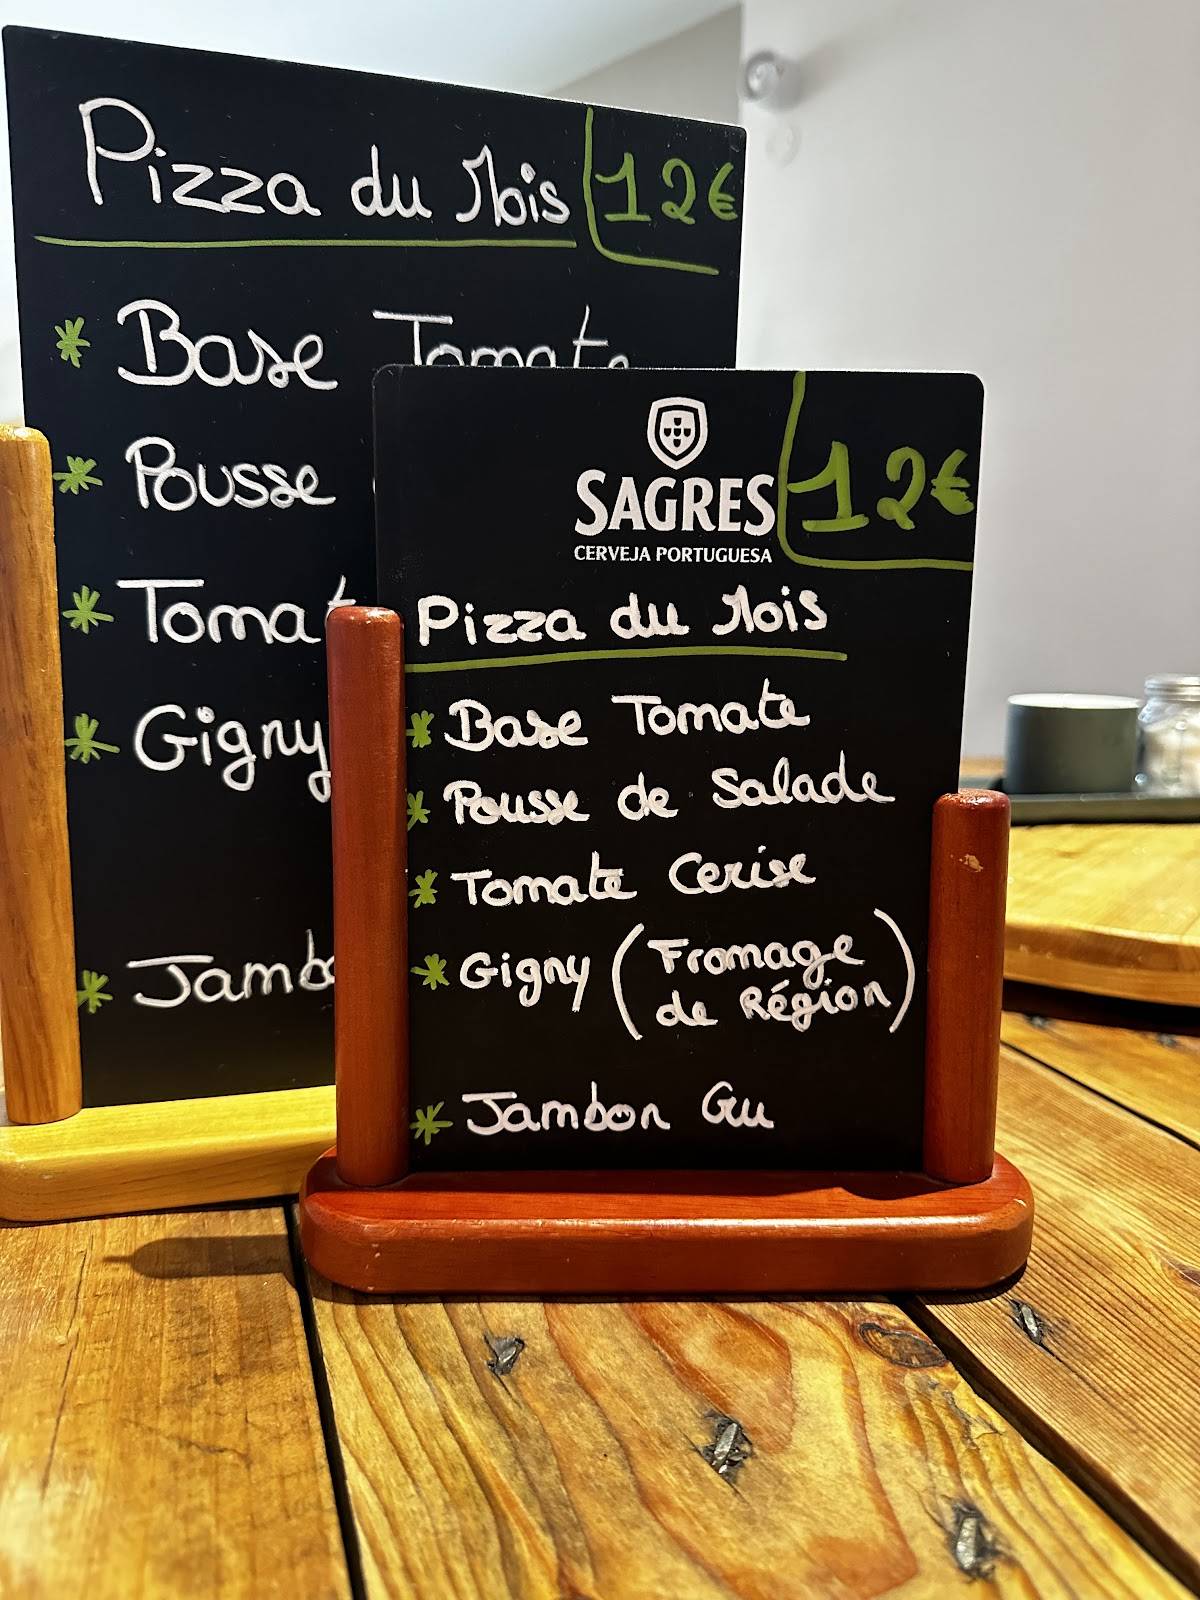 Pizza du Mois 12€
* Base Tomate
* Pousse
* Tomat
* Gigny
* Jambo
SAGRES
CERVEJA PORTUGUESA
12€
Pizza du Mois
* Base Tomate
* Pousse de Salade
* Tomate Cerise
* Gigny (Fromage
de Région)
* Jambon Cru